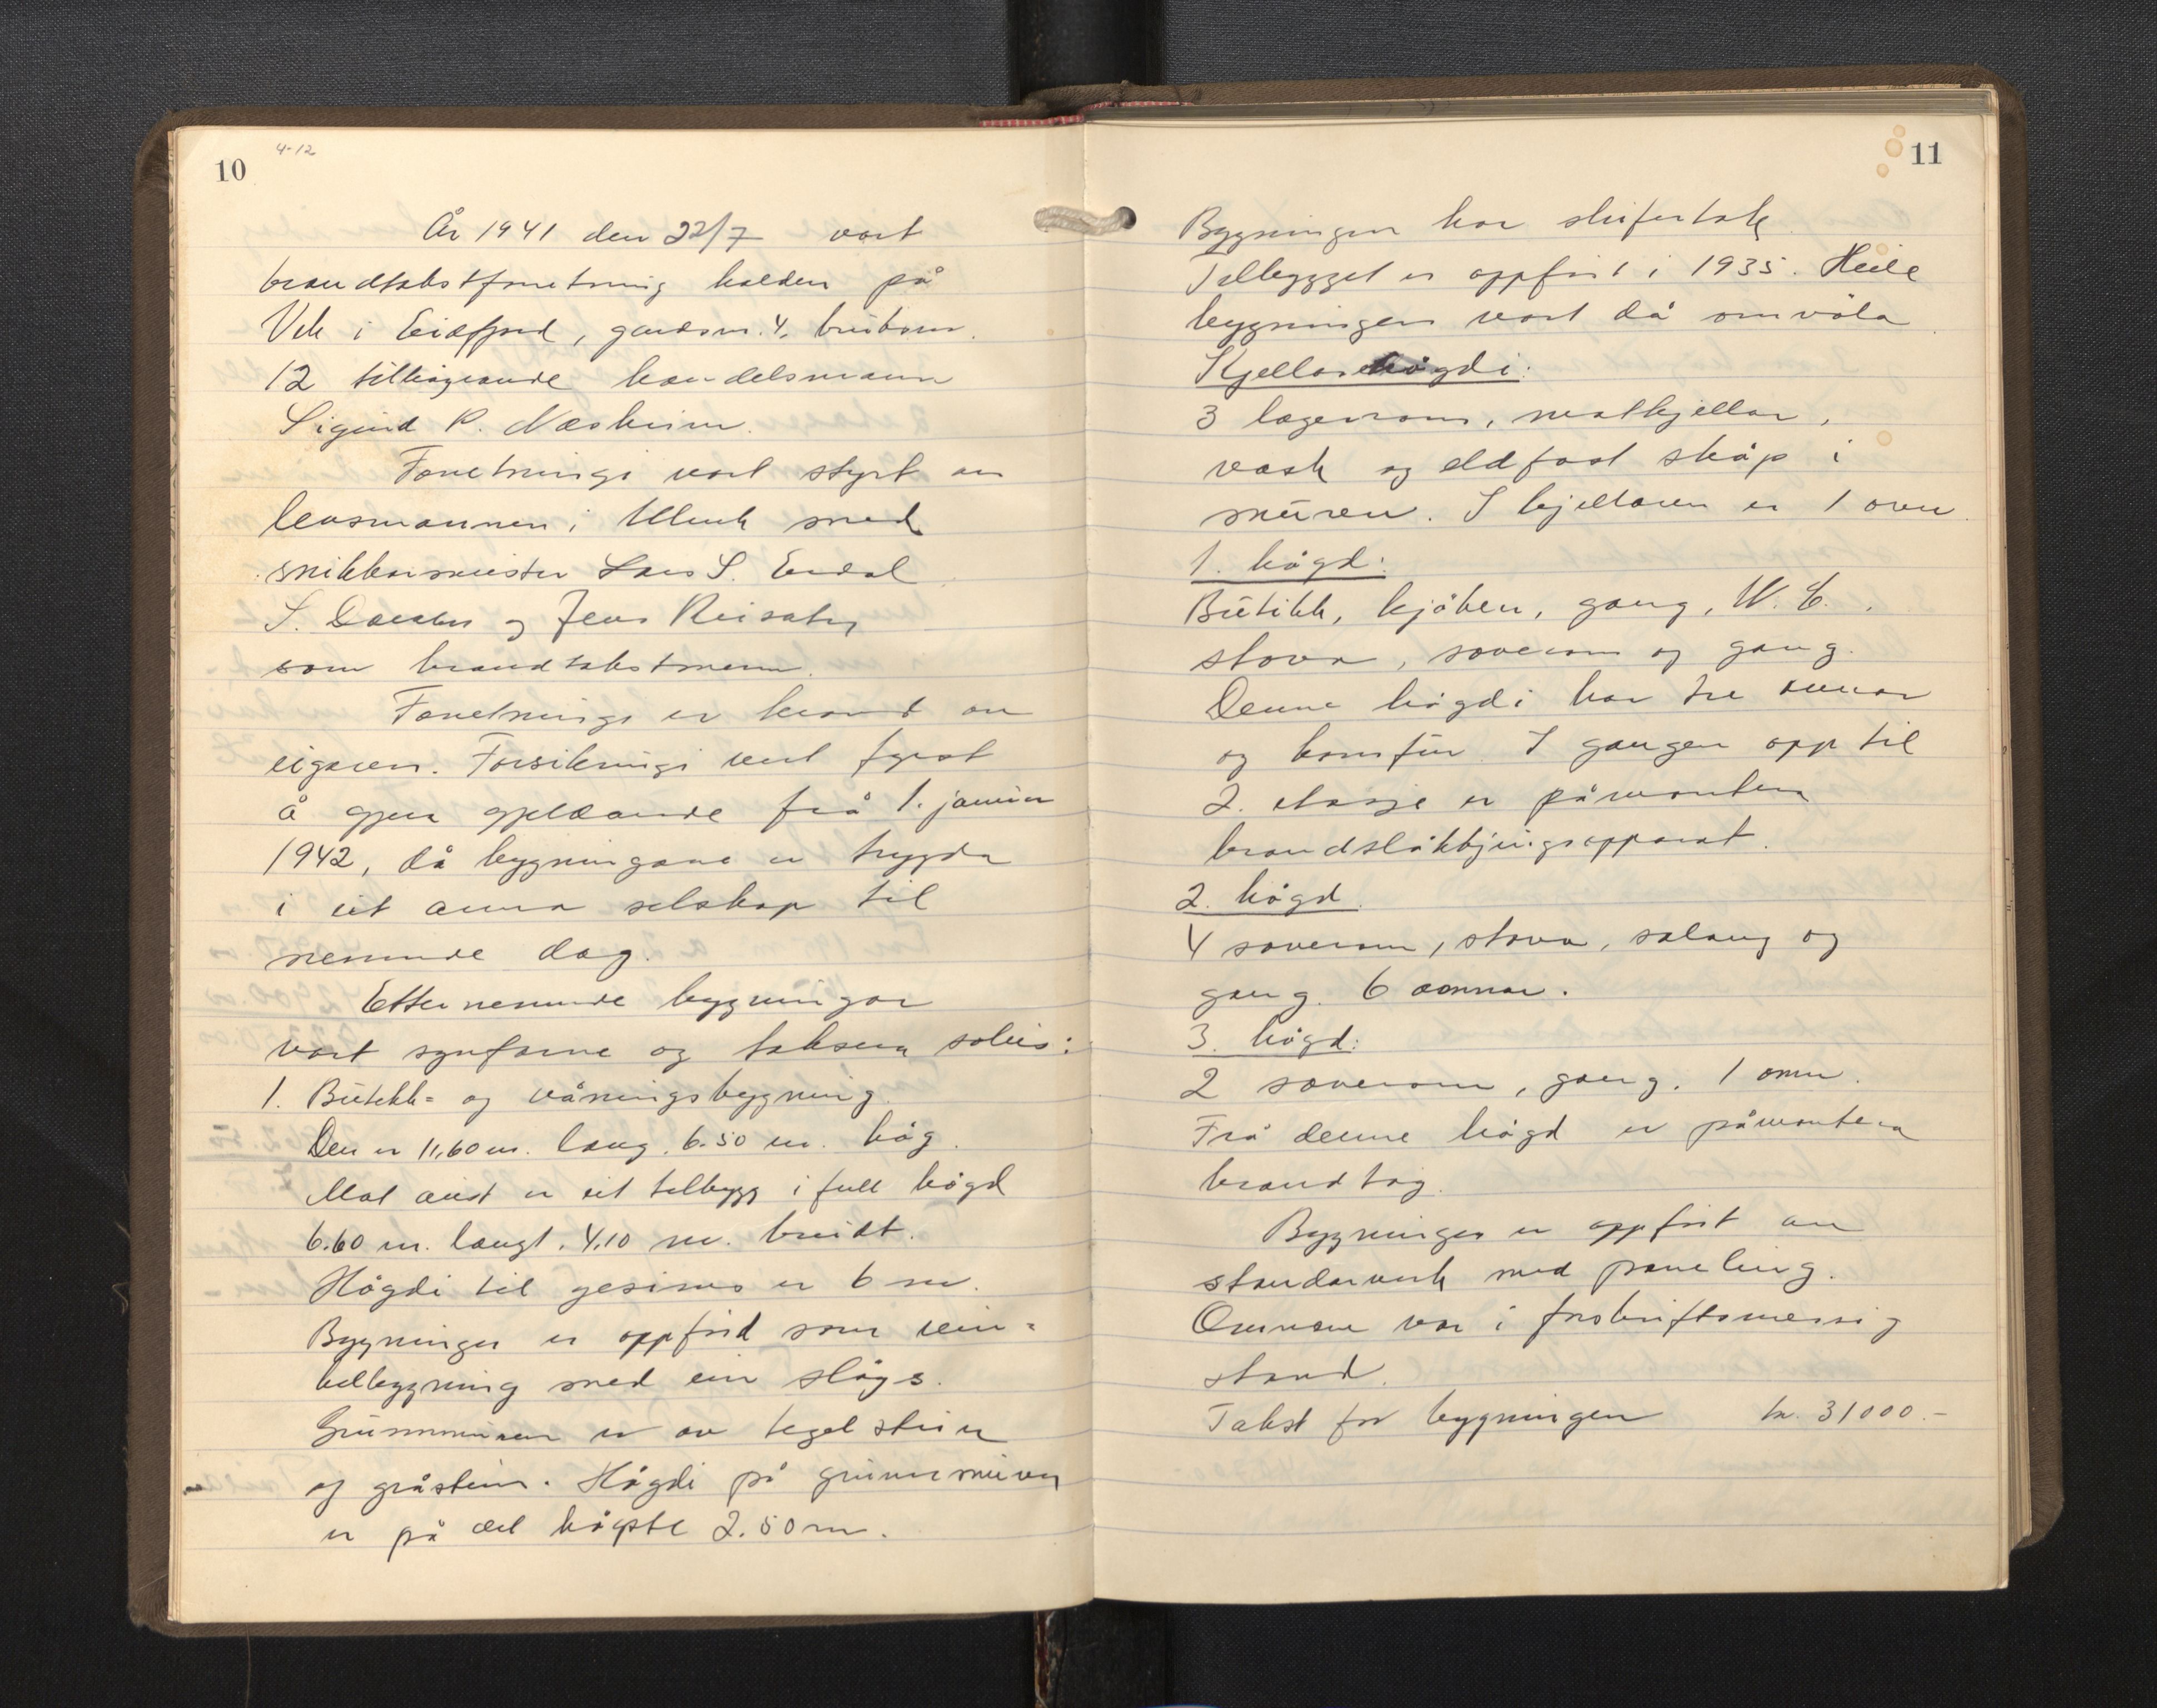 10
4-12
År 1941 den 22/7 vart
brandtakstforretning halden på
Vik i Eidfjord, gardsnr. 4, bruksnr.
12 tilhøyrande handelsmann
Sigurd P. Næsheim.
Forretningi vart styrt av
lensmannen i Ulvik med
snikkarmeister Lars S. Erdal
S. og Jens Reisæter
som brandtakstmenn.
Forretningi er kravd av
eigaren. Forsikringi vert fyrst
å gjera gjeldande frå 1. januar
1942, då bygningane er trygda
i eit anna selskap til
nemnde dag.
Etternemnde bygningar
vart synfarne og taksera soleis:
1. Butikk- og våningsbygning.
Den er 11,60 m. lang. 6.50 m. håg.
Mot aust er eit tilbygg i full högd
6.60 m. langt. 4.10 m. breidt.
Högdi til gesims er 6 m.
Bygningen er oppförd som ein-
belbygning med ein slögs.
Grunnmuren er av tegelstein
og gråstein. Högdi på grunnmuren
er på det högste 2.50 m.
11
Bygningen har skifertak
Tilbygget er oppfört i 1935. Heile
bygningen vart då omvöla.
Kjellarhögdi:
3 lagerrom, matkjellar,
vask og eldfast skåp i
muren. I kjellaren er 1 omn.
1. högd:
Butikk, kjöken, gang, W. C.,
stova, soverom og gang.
Denne högdi har tre omnar
og komfur. I gangen opp til
2. etasje er påmontera
brandslökkjingsapparat.
2. högd.
4 soverom, stova, salong og
gang. 6 omnar.
3. högd:
2 soverom, gang. 1 omn.
Frå denne högd er påmontera
brandtog.
Bygningen er oppfört av
standarverk med paneling.
Omnane var i forskriftsmessig
stand.
Takst for bygningen kr. 31000.-